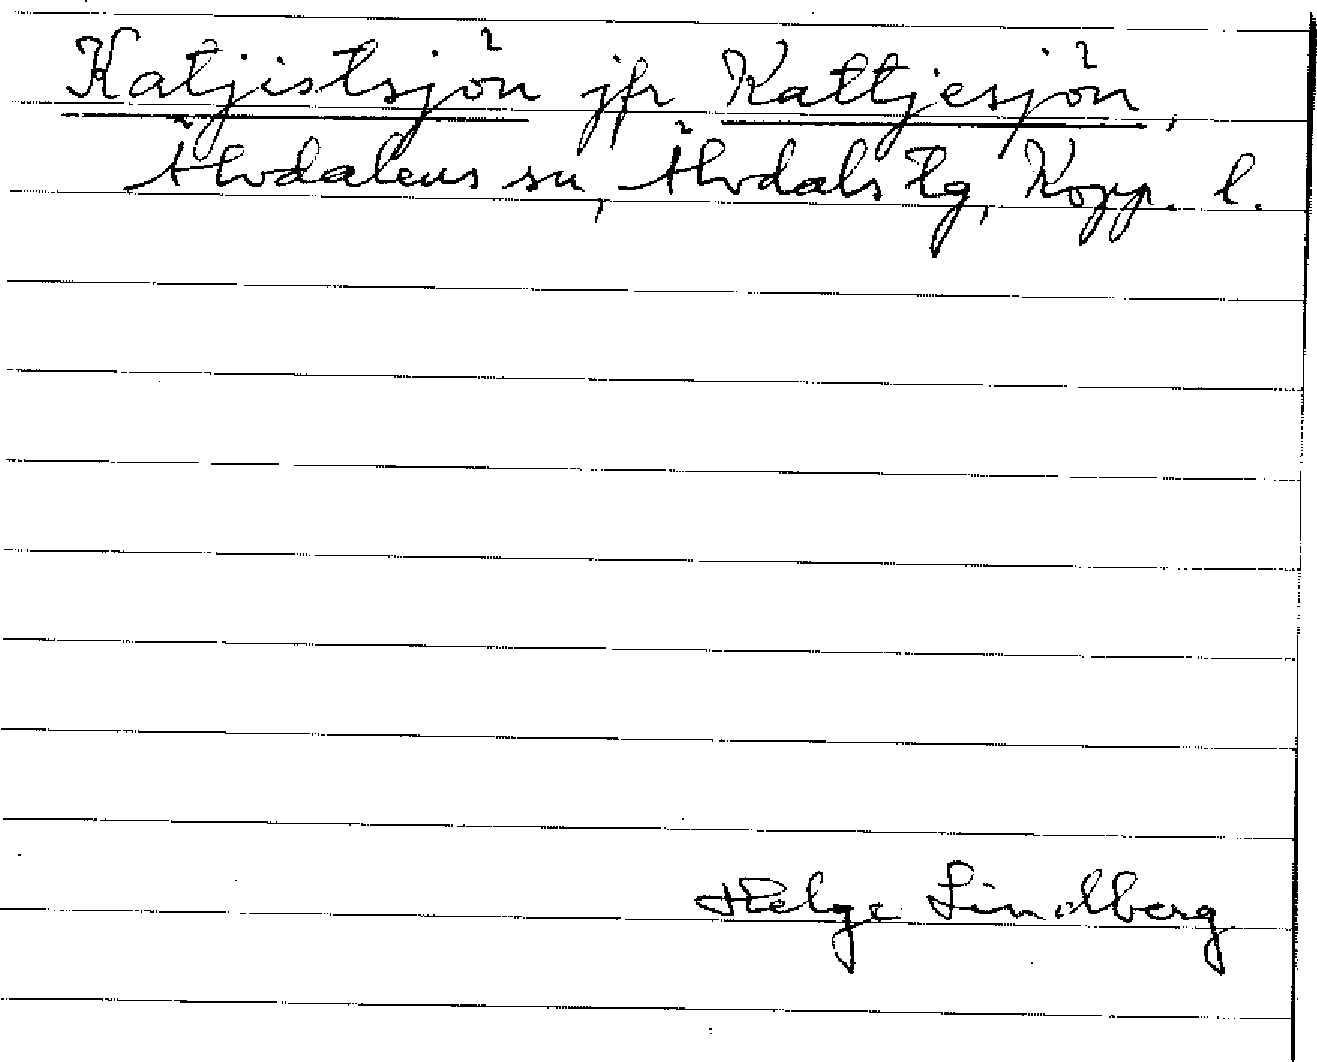 Katjistsjön jfr Kattjesjön,
Älvdalens sn, Älvdals tg, Kopp. l.
Helge Lindberg